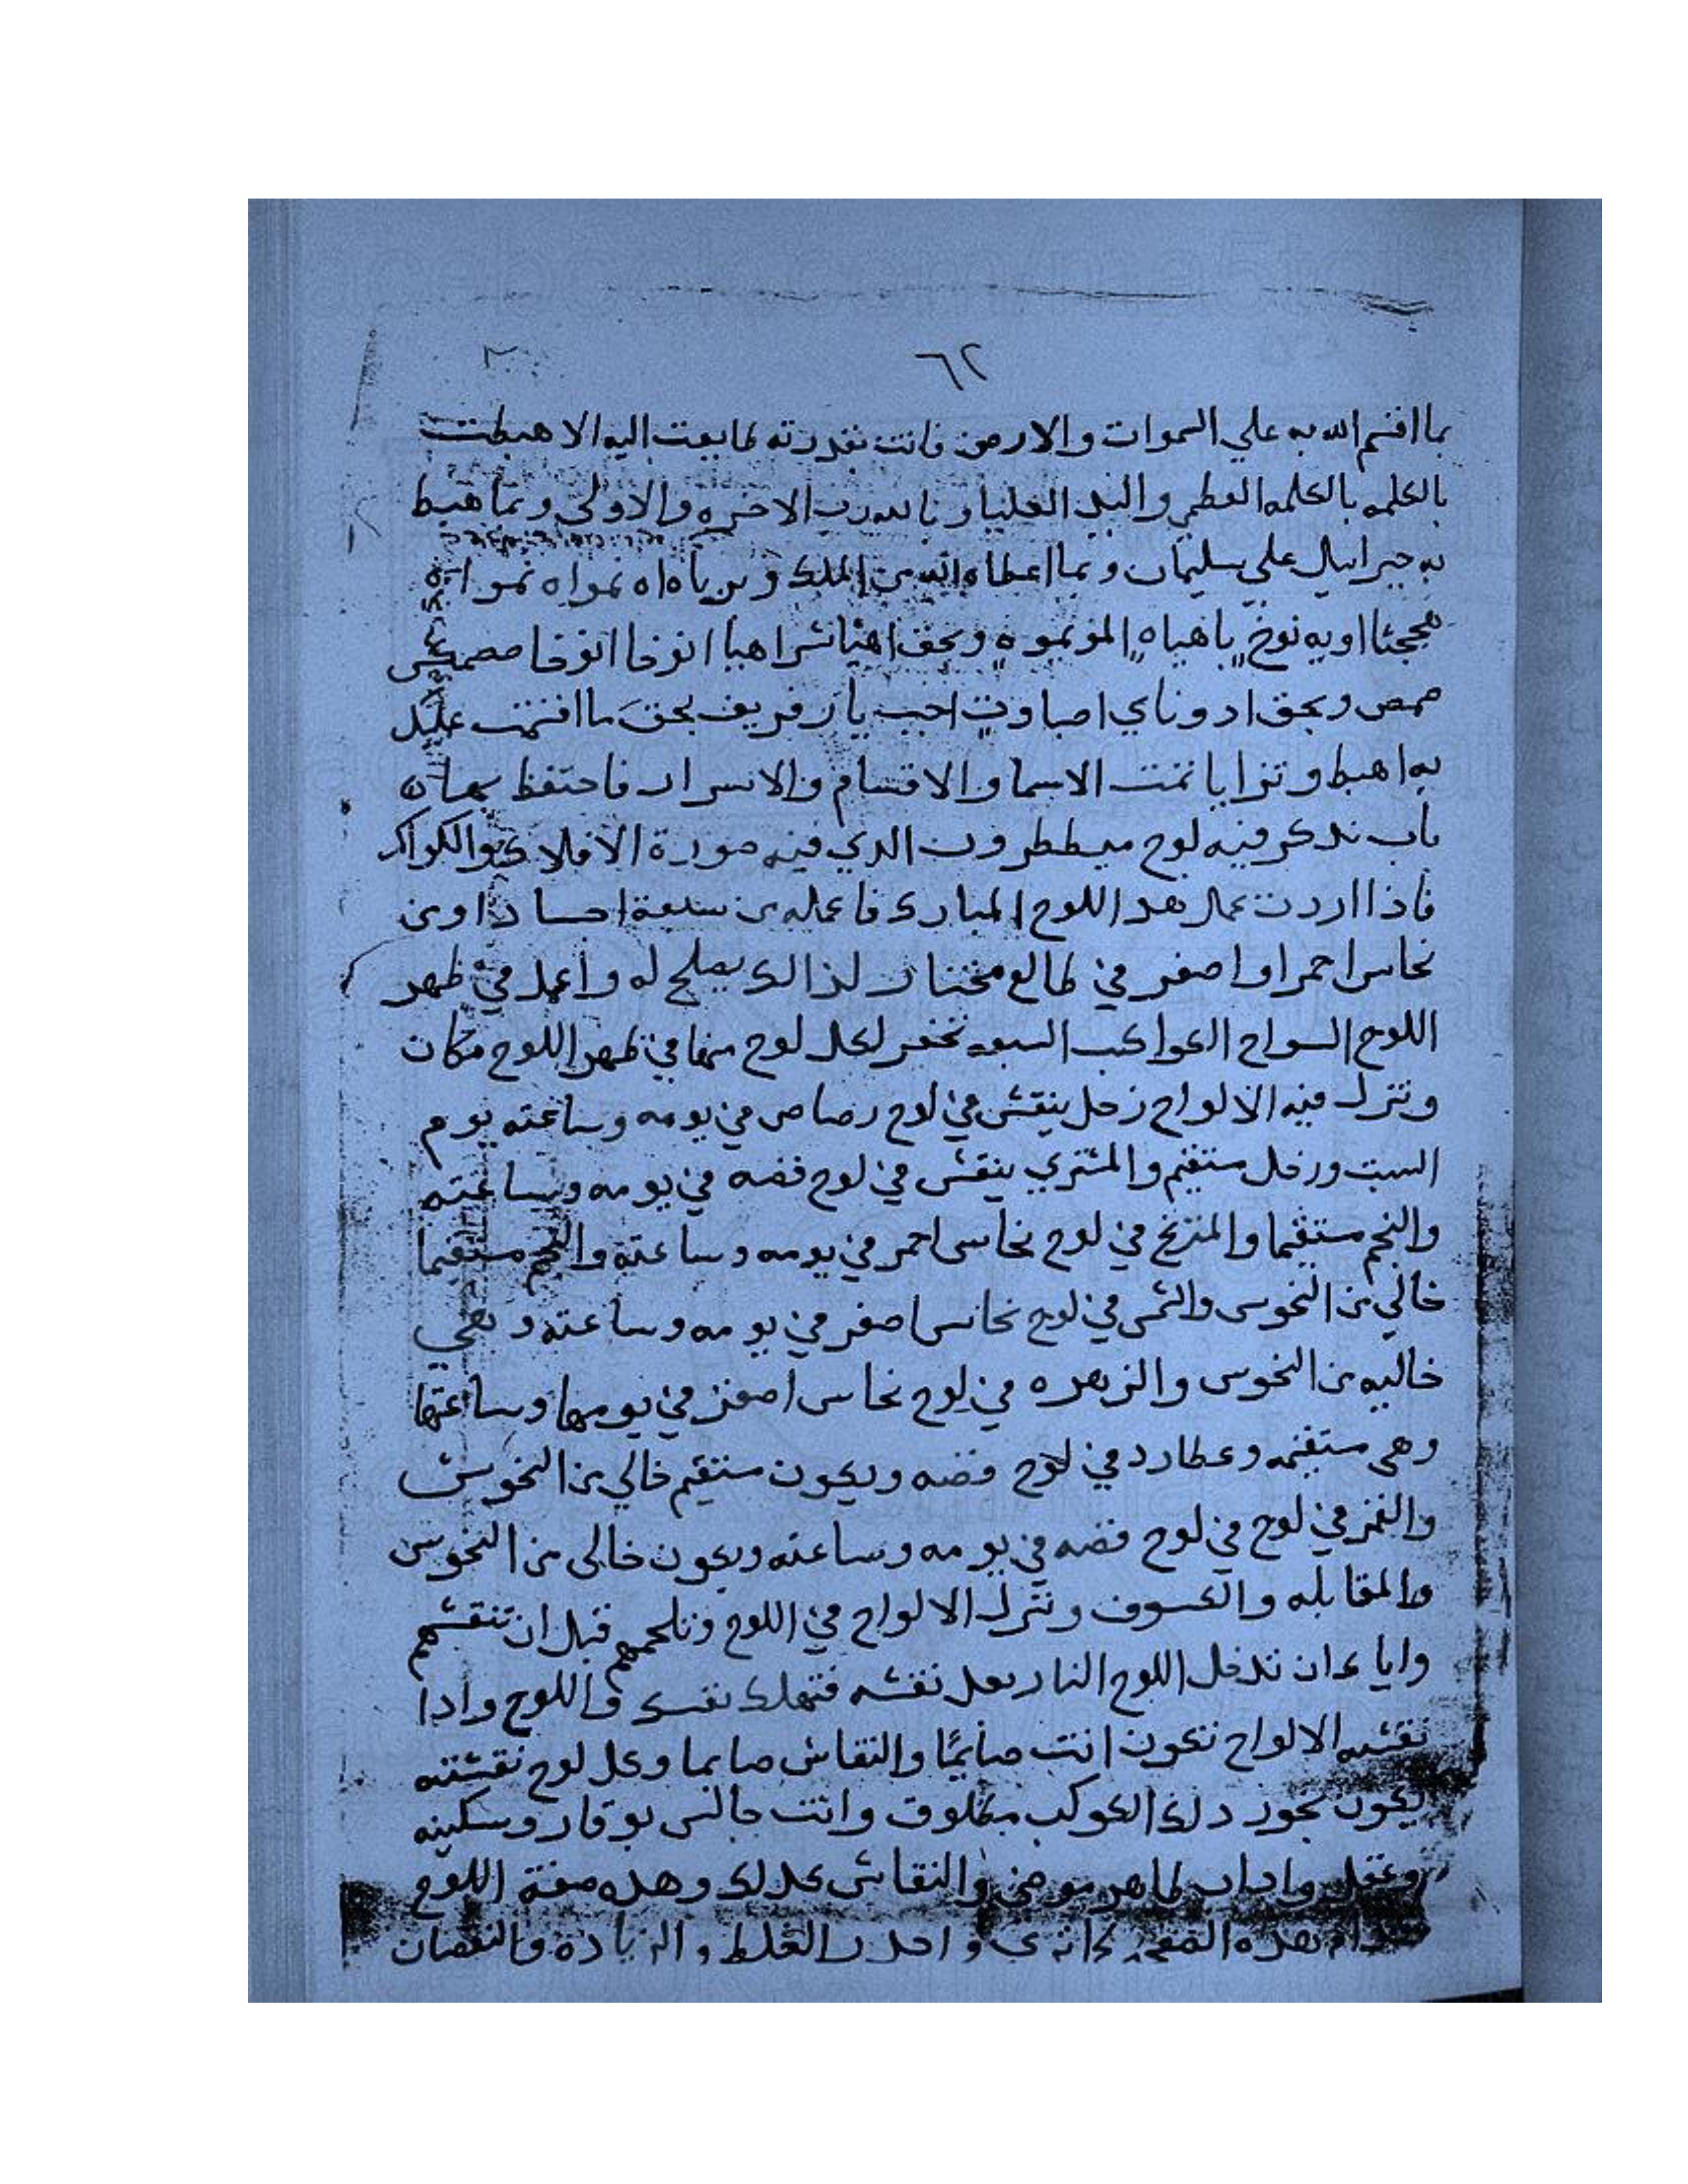 ٦٢
بما اقسم الله به علي السموات والارض فانت بقدرته طايعت اليه الا هبطت
بالكلمه بالكلمه العظمي والبد العليا و بالله رب الاخره والاولي وبما هبط
به جبراييل علي سليمان و بما اعطاه الله من الملك و
اويه نوخ ياهياه وبحق اهيا شراهيا انوخا انوخا
صمص وبحق ادوناي اصباوت اجب يا زفريف بحق ما اقسمت عليك
به اهبط و تزايا تمت الاسما والاقسام والاسرار فاحتفظ بها
باب نذكر فيه لوح ميططرون الذي فيه صورة الافلاك والكواكب
فاذا اردت عمل هدا اللوح المبارك فاعمله من سبعة اجساد اومن
نحاس احمر او اصفر في طالع مختار لذالك يصلح له واعمل في ظهر
اللوح الواح الكواكب السبعه تحفر لكل لوح منها في ظهر اللوح مكان
وتنزل فيه الالواح زحل ينقش في لوح رصاص في يومه وساعته يوم
السبت وزحل ستقيم والمشتري ينقش في لوح فضه في يومه وساعته
والنجم مستقيما والمريخ في لوح نحاس احمر في يومه وساعته والنجم مستقيما
خالي من النحوس والشمس في لوح نحاس اصفر في يومه وساعته وهي
خاليه من النحوس والزهره في لوح نحاس اصفر في يومها وساعتها
وهي ستقيمه وعطارد في لوح فضه ويكون ستقيم خالي من النحوس
والقمر في لوح في لوح فضه في يومه وساعته ويكون خالي من النحوس
والمقابله والكسوف وتنزل الالواح في اللوح وتلحمهم قبل ان تنقشهم
واياك ان تدخل اللوح النار بعد نقشه فتهلك نفسك واللوح وادا
نقشه الالواح تكون انت صايمًا والنقاش صايما وكل لوح نقشته
يكون بخور دلك الكوكب مطلوق وانت جالس بوقار وسكينه
وعقل واداب طاهر موضي والنقاش كدلك وهده صفة اللوح
بهده الصفحه كاتري واحدر الغلط والزيادة والنقصان